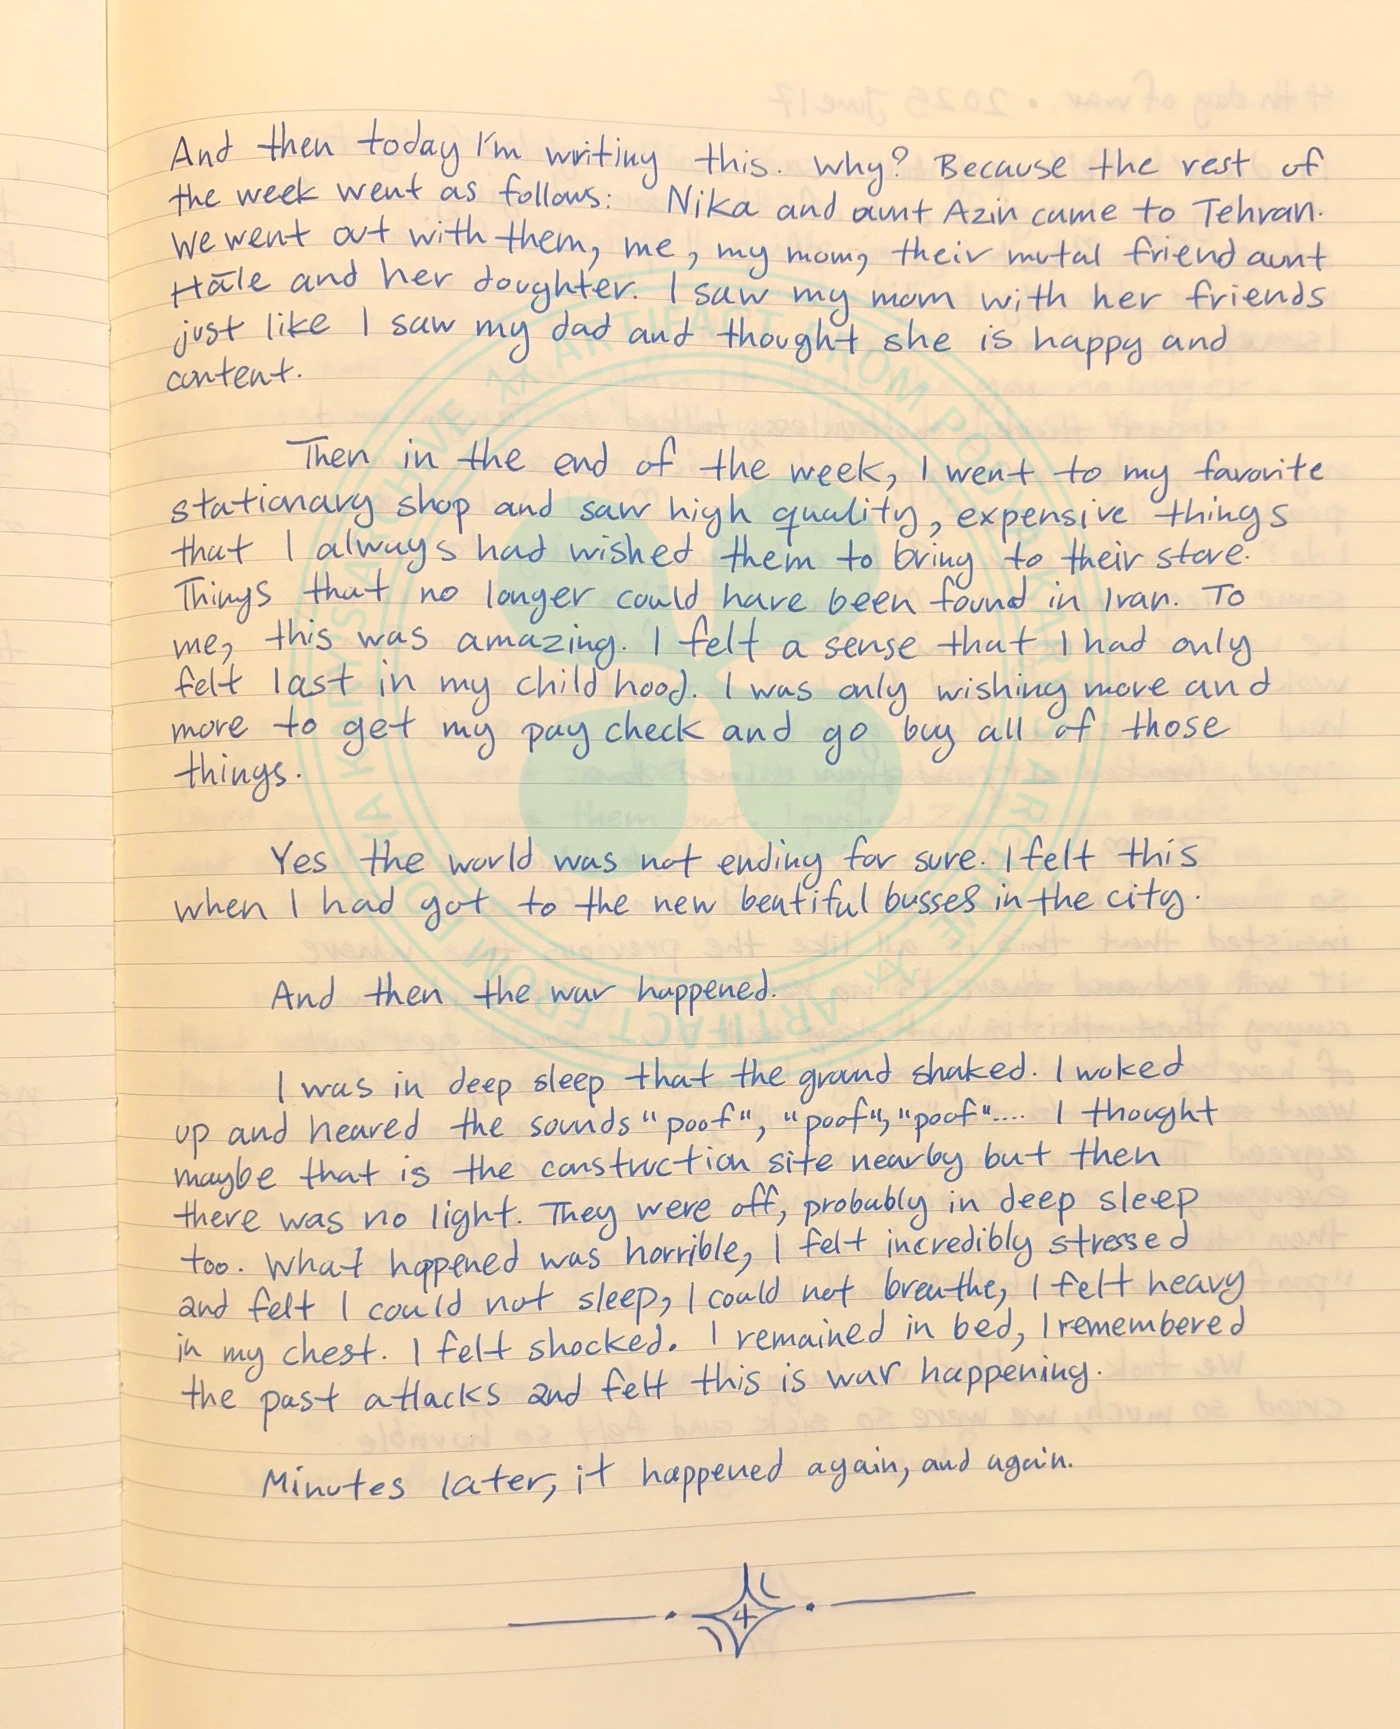 And then today I'm writing this. Why? Because the rest of
the week went as follows: Nika and aunt Azin came to Tehran.
We went out with them, me, my mom, their mutal friend aunt
Hāle and her doughter. I saw my mom with her friends
just like I saw my dad and thought she is happy and
content.
Then in the end of the week, I went to my favorite
stationary shop and saw high quality, expensive things
that I always had wished them to bring to their store.
Things that no longer could have been found in Iran. To
me, this was amazing. I felt a sense that I had only
felt last in my child hood. I was only wishing more and
more to get my pay check and go buy all of those
things.
Yes the world was not ending for sure. I felt this
when I had got to the new beatiful busses in the city.
And then the war happened.
I was in deep sleep that the ground shaked. I woked
up and heared the sounds "poof", "poof", "poof".... I thought
maybe that is the construction site nearby but then
there was no light. They were off, probably in deep sleep
too. What happened was horrible, I felt incredibly stressed
and felt I could not sleep, I could not breathe, I felt heavy
in my chest. I felt shocked. I remained in bed, I remembered
the past attacks and felt this is war happening.
Minutes later, it happened again, and again.
4